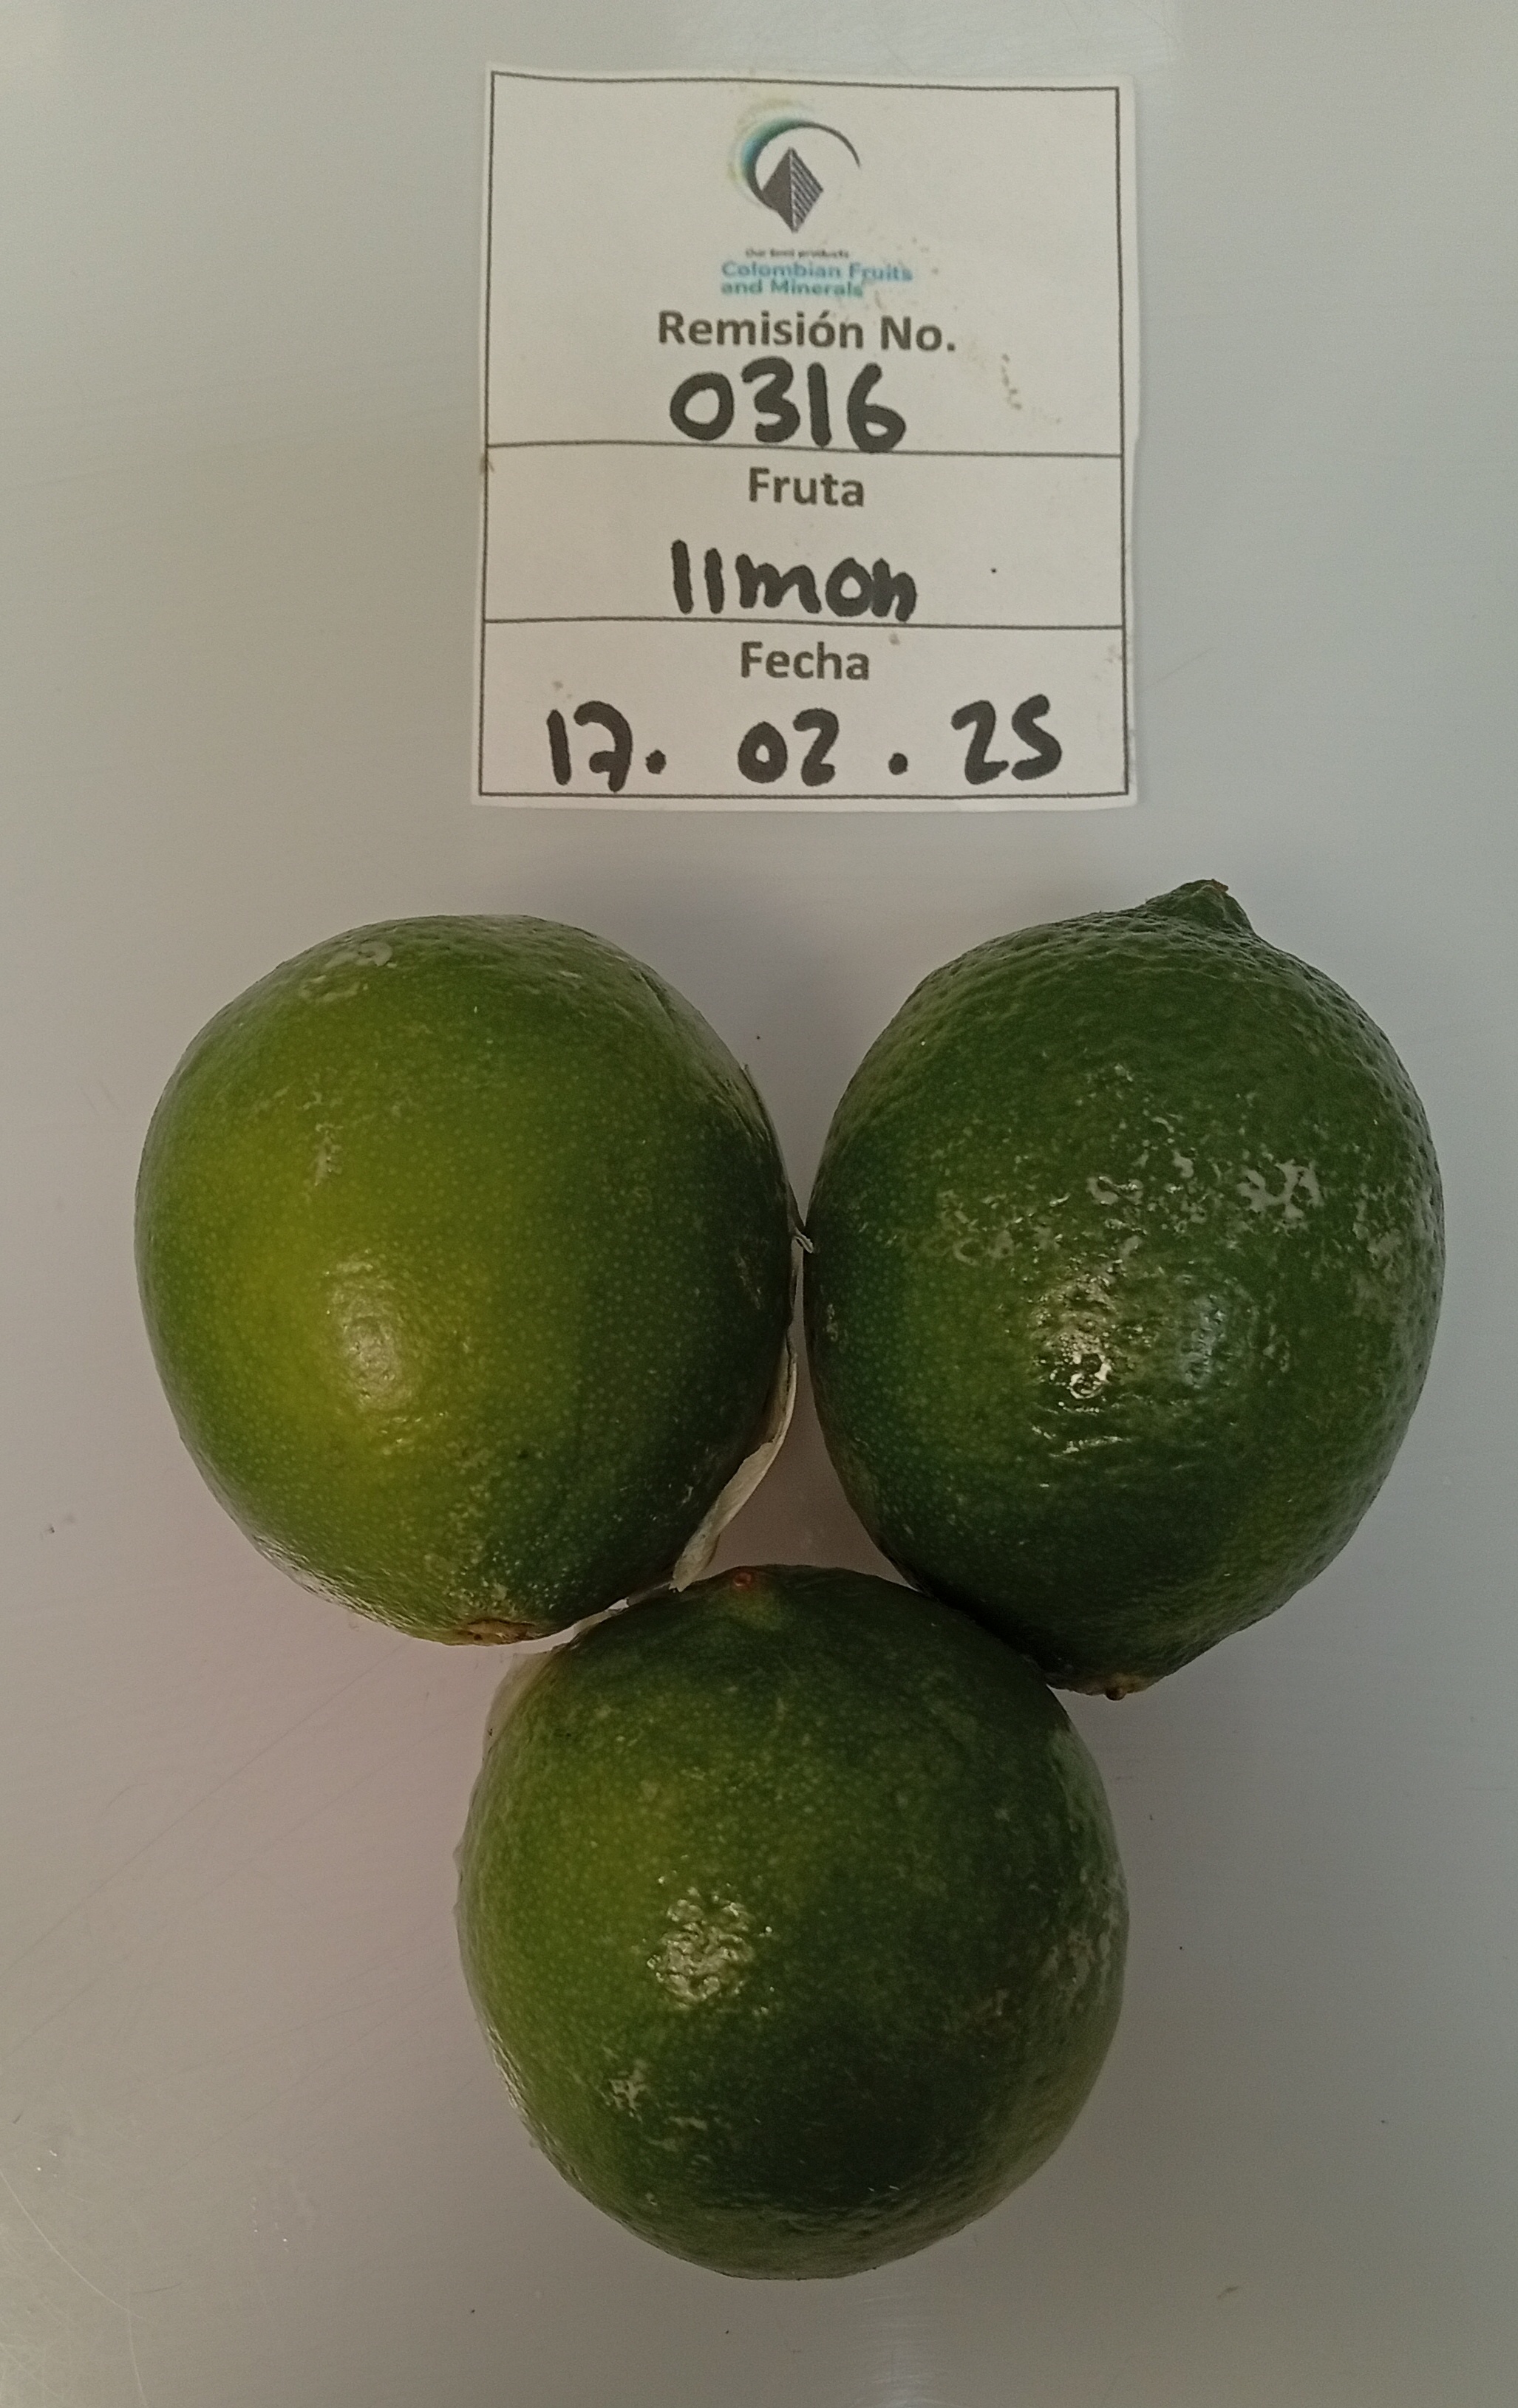 Our best products
Colombian Fruits
and Minerals
Remisión No.
0316
Fruta
limon
Fecha
17. 02 . 25